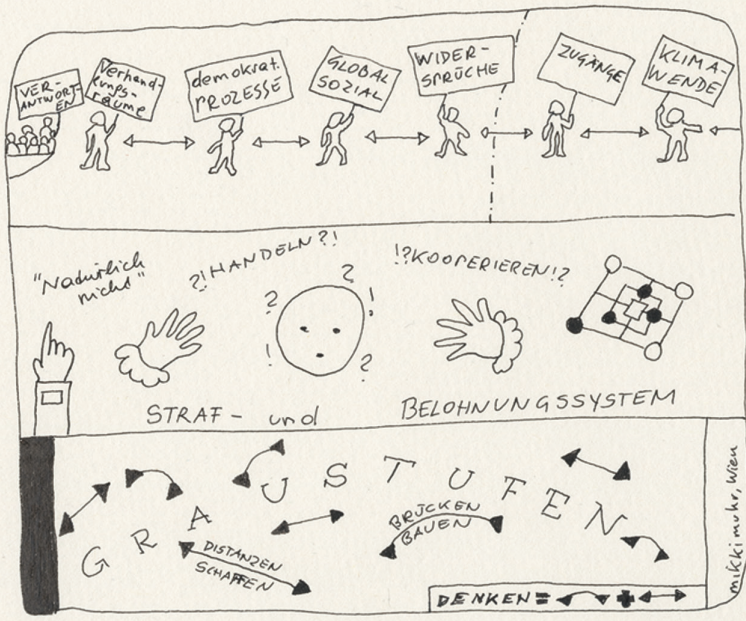 VER-
ANTWORT-
EN
Verhand-
lungs-
räume
demokrat.
PROZESSE
GLOBAL
SOZIAL
WIDER-
SPRÜCHE
ZUGÄNGE
KLIMA-
WENDE
"Natürlich
nicht"
?!HANDELN?!
!?KOOPERIEREN!?
? ? ? ! ! ?
STRAF- und BELOHNUNGSSYSTEM
GRAUSTUFEN
DISTANZEN
SCHAFFEN
BRÜCKEN
BAUEN
DENKEN = +
mikki muhr, Wien